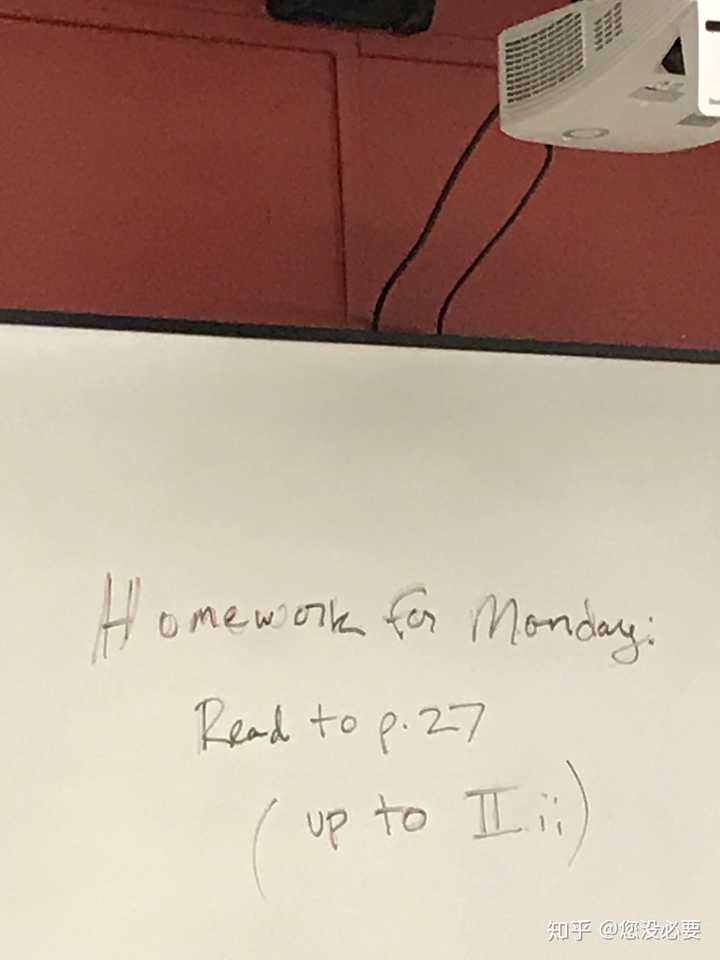 Homework for Monday:
Read to p.27
(up to II.ii)
知乎 @您没必要